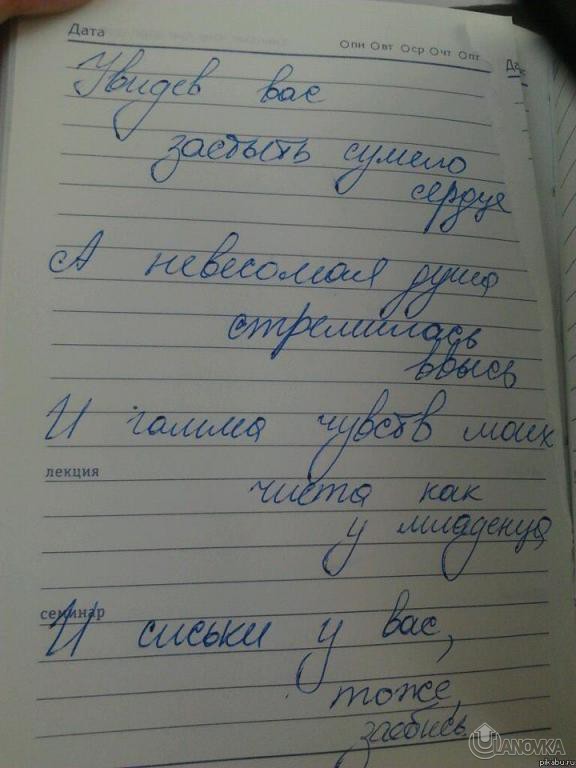 Дата
Опн Овт Оср Очт Опт
Увидев вас
застыть сумело
сердце
А невесомая душа
стремилась
ввысь
И гамма чувств моих
лекция
чиста как
у младенца
семинар
И сиськи у вас,
тоже,
заебись
UANOVKA
pikabu.ru